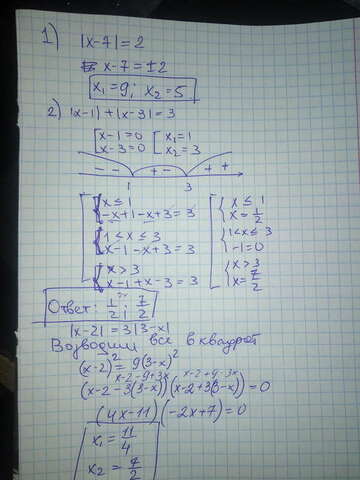 1) |x-7|=2
x-7=±2
x₁=9; x₂=5
2) |x-1|+|x-3|=3
[x-1=0 [x₁=1
[x-3=0 [x₂=3
- - + - + +
1 3
{x≤1 {x≤1
{-x+1-x+3=3 {x=1/2
{1<x≤3 {1<x≤3
{x-1-x+3=3 {-1=0
{x>3 {x>3
{x-1+x-3=3 {x=7/2
Ответ: 1/2; 7/2
|x-2|=3|3-x|
Возводим все в квадрат
(x-2)²=9(3-x)²
x-2-9+3x x-2+9-3x
(x-2-3(3-x))(x-2+3(3-x))=0
(4x-11)(-2x+7)=0
x₁=11/4
x₂=7/2